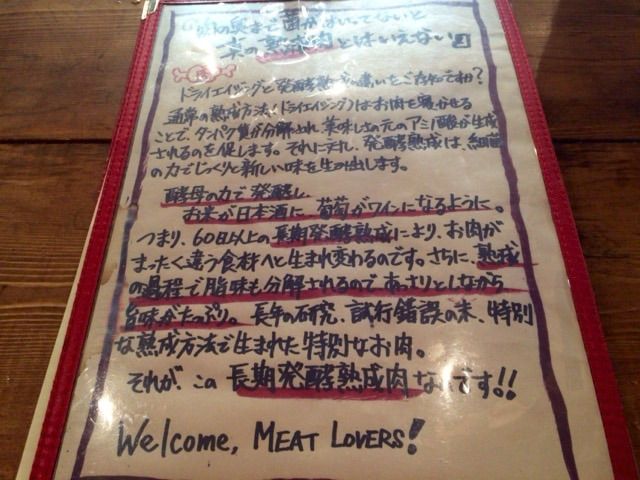 「肉の奥まで菌がはいってないと
真の熟成肉とはいえない」
肉
ドライエイジングと発酵熟成の違いをご存知ですか?
通常の熟成方法(ドライエイジング)はお肉を寝かせる
ことで、タンパク質が分解され、美味しさの元のアミノ酸が生成
されるのを促します。それに対し、発酵熟成は、細菌
の力でじっくりと新しい味を生み出します。
酵母の力で発酵し
お米が日本酒に、葡萄がワインになるように。
つまり、60日以上の長期発酵熟成により、お肉が
まったく違う食材へと生まれ変わるのです。さらに、熟成
の過程で脂味も分解されるのであっさりとしながら
旨味がたっぷり。長年の研究、試行錯誤の末、特別
な熟成方法で生まれた特別なお肉。
それが、この長期発酵熟成肉なのです!!
Welcome, MEAT LOVERS!